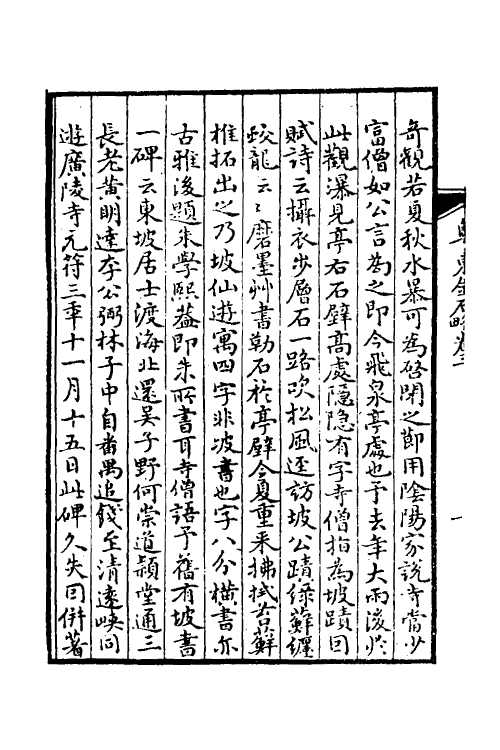 奇觀若夏秋水暴可為啓閉之節用陰陽家說寺當少
富僧如公言為之即今飛泉亭處也予去年大雨後於
此觀瀑見亭右石壁高處隱隱有字寺僧指為坡蹟因
賦詩云攝衣步層石一路吹松風逕訪坡公蹟綠蘚纏
蛟龍云〻磨墨艸書勒石於亭壁今夏重來拂拭苔蘚
椎拓出之乃坡仙遊寓四字非坡書也字八分橫書亦
古雅後題朱學熙葢即朱所書耳寺僧語予舊有坡書
一碑云東坡居士渡海北還吳子野何崇道頴堂通三
長老黃明達李公弼林子中自番禺追餞至清遠峽同
遊廣陵寺元符三年十一月十五日此碑久失因併著
粵東金石略卷二
一